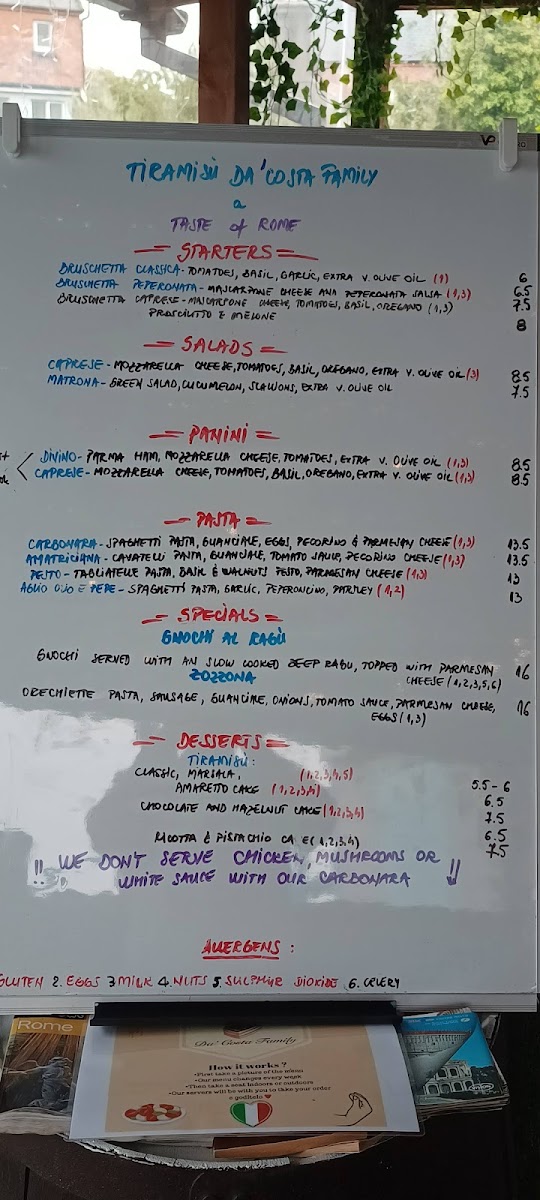 TIRAMISÙ DA'COSTA FAMILY
a
TASTE of ROME
STARTERS
BRUSCHETTA CLASSICA - TOMATOES, BASIL, GARLIC, EXTRA V. OLIVE OIL (1) 6
BRUSCHETTA PEPERONATA - MASCARPONE CHEESE AND PEPERONATA SALSA (1,3) 6.5
BRUSCHETTA CAPRESE - MASCARPONE CHEESE, TOMATOES, BASIL, OREGANO (1,3) 7.5
PROSCIUTTO E MELONE 8
SALADS
CAPRESE - MOZZARELLA CHEESE, TOMATOES, BASIL, OREGANO, EXTRA V. OLIVE OIL (3) 8.5
MATRONA - GREEN SALAD, CUCUMELON, SCALLIONS, EXTRA V. OLIVE OIL 7.5
PANINI
DIVINO - PARMA HAM, MOZZARELLA CHEESE, TOMATOES, EXTRA V. OLIVE OIL (1,3) 8.5
CAPRESE - MOZZARELLA CHEESE, TOMATOES, BASIL, OREGANO, EXTRA V. OLIVE OIL (1,3) 8.5
PASTA
CARBONARA - SPAGHETTI PASTA, GUANCIALE, EGGS, PECORINO & PARMESAN CHEESE (1,3) 13.5
AMATRICIANA - CAVATELLI PASTA, GUANCIALE, TOMATO SAUCE, PECORINO CHEESE (1,3) 13.5
PESTO - TAGLIATELLE PASTA, BASIL & WALNUTS PESTO, PARMESAN CHEESE (1,3) 13
AGLIO OLIO E PEPE - SPAGHETTI PASTA, GARLIC, PEPERONCINO, PARSLEY (1,2) 13
SPECIALS
GNOCHI AL RAGÙ
GNOCHI SERVED WITH AN SLOW COOKED BEEF RAGU, TOPPED WITH PARMESAN 16
CHEESE (1,2,3,5,6)
ZOZZONA
ORECHIETTE PASTA, SAUSAGE, GUANCIALE, ONIONS, TOMATO SAUCE, PARMESAN CHEESE, 16
EGGS (1,3)
DESSERTS
TIRAMISU:
CLASSIC, MARSALA, (1,2,3,4,5) 5.5 - 6
AMARETTO CAKE (1,2,3,4) 6.5
CHOCOLATE AND HAZELNUT CAKE (1,2,3,4) 7.5
6.5
RICOTTA E PISTACHIO CA E (1,2,3,4) 7.5
!! WE DON'T SERVE CHICKEN, MUSHROOMS OR !!
WHITE SAUCE WITH OUR CARBONARA
ALLERGENS :
GLUTEN 2. EGGS 3 MILK 4. NUTS 5. SULPHUR DIOXIDE 6. CELERY
Rome
Da' Costa Family
How it works ?
•First take a picture of the menu
•Our menu changes every week
•Then take a seat indoors or outdoors
•Our servers will be with you to take your order